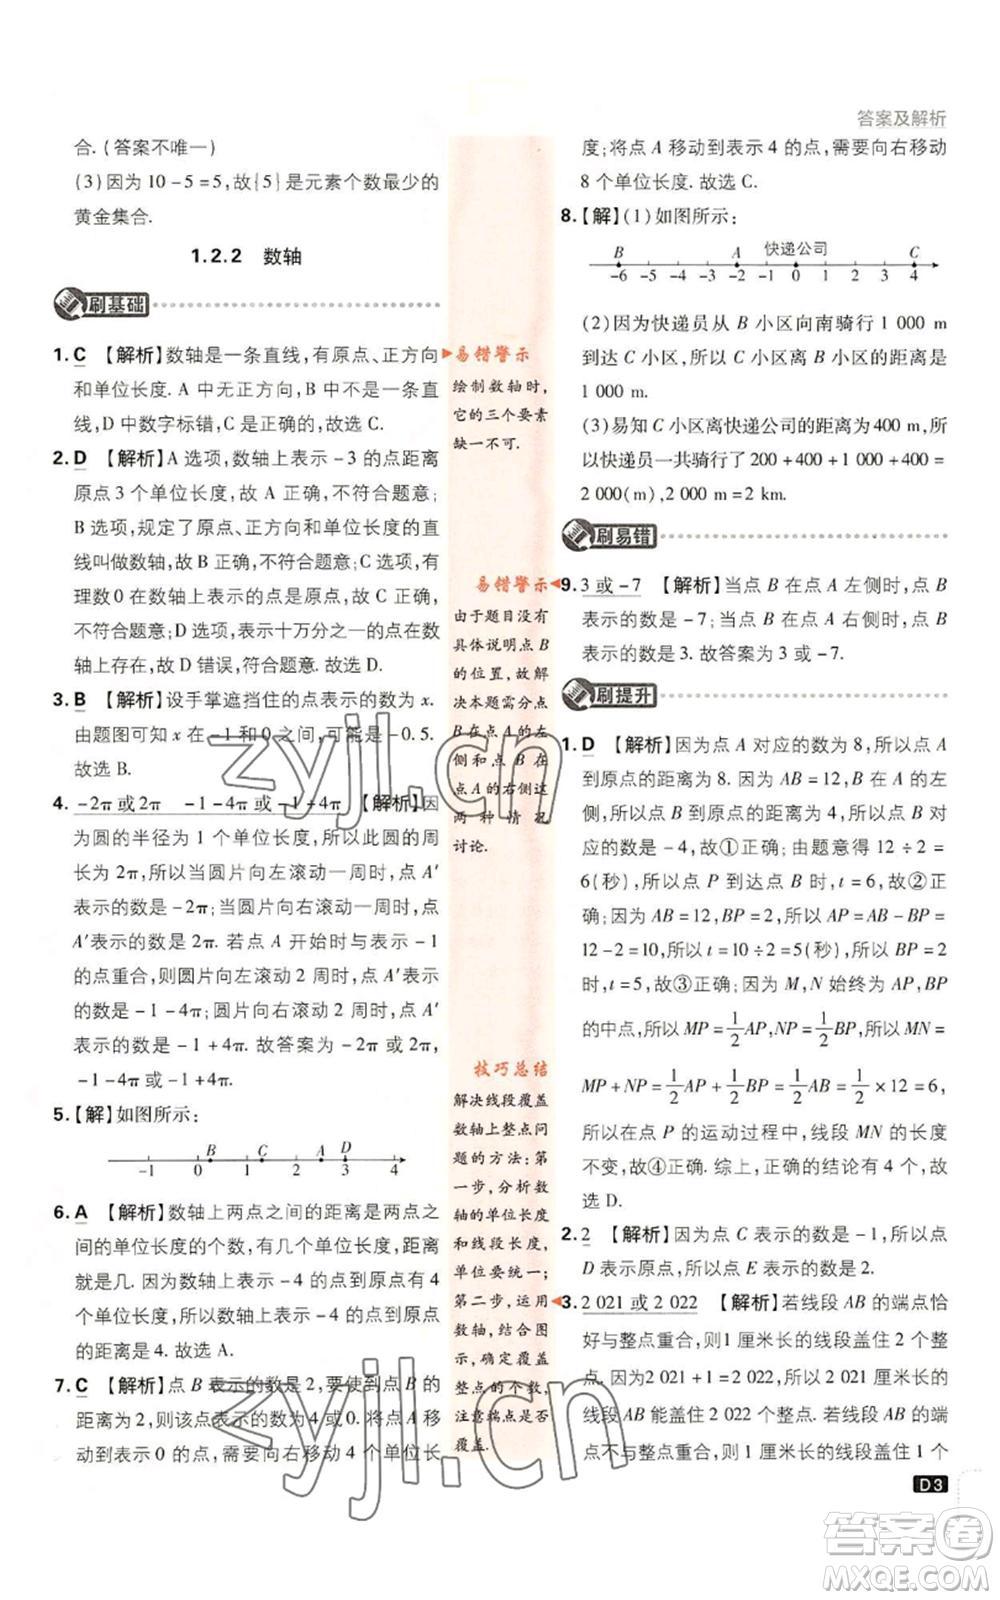 答案及解析
合. (答案不唯一)
(3)因为 10-5=5,故{5}是元素个数最少的
黄金集合.
1.2.2 数轴
刷基础
1. C 【解析】数轴是一条直线,有原点、正方向
和单位长度. A 中无正方向,B 中不是一条直
线,D 中数字标错,C 是正确的,故选 C.
2. D 【解析】A 选项,数轴上表示 -3 的点距离
原点 3 个单位长度,故 A 正确,不符合题意;
B 选项,规定了原点、正方向和单位长度的直
线叫做数轴,故 B 正确,不符合题意;C 选项,有
理数 0 在数轴上表示的点是原点,故 C 正确,
不符合题意;D 选项,表示十万分之一的点在数
轴上存在,故 D 错误,符合题意. 故选 D.
3. B 【解析】设手掌遮挡住的点表示的数为 x.
由题图可知 x 在 -1 和 0 之间,可能是 -0.5.
故选 B.
4. -2π 或 2π -1-4π 或 -1+4π 【解析】因
为圆的半径为 1 个单位长度,所以此圆的周
长为 2π,所以当圆片向左滚动一周时,点 A′
表示的数是 -2π;当圆片向右滚动一周时,点
A′表示的数是 2π. 若点 A 开始时与表示 -1
的点重合,则圆片向左滚动 2 周时,点 A′表示
的数是 -1-4π;圆片向右滚动 2 周时,点 A′
表示的数是 -1+4π. 故答案为 -2π 或 2π,
-1-4π 或 -1+4π.
5. 【解】如图所示:
B C A D
-1 0 1 2 3 4
6. A 【解析】数轴上两点之间的距离是两点之
间的单位长度的个数,有几个单位长度,距离
就是几. 因为数轴上表示 -4 的点到原点有 4
个单位长度,所以数轴上表示 -4 的点到原点
的距离是 4. 故选 A.
7. C 【解析】点 B 表示的数是 2,要使得到点 B 的
距离为 2,则该点表示的数为 4 或 0. 将点 A 移
动到表示 0 的点,需要向右移动 4 个单位长
易错警示
绘制数轴时,
它的三个要素
缺一不可.
易错警示
由于题目没有
具体说明点 B
的位置,故解
决本题需分点
B 在点 A 的左
侧和点 B 在
点 A 的右侧这
两种情况
讨论.
技巧总结
解决线段覆盖
数轴上整点问
题的方法:第
一步,分析数
轴的单位长度
和线段长度,
单位要统一;
第二步,运用
数轴,结合图
示,确定覆盖
整点的个数,
注意端点是否
覆盖.
度;将点 A 移动到表示 4 的点,需要向右移动
8 个单位长度. 故选 C.
8. 【解】(1)如图所示:
B A 快递公司 C
-6 -5 -4 -3 -2 -1 0 1 2 3 4
(2)因为快递员从 B 小区向南骑行 1 000 m
到达 C 小区,所以 C 小区离 B 小区的距离是
1 000 m.
(3)易知 C 小区离快递公司的距离为 400 m,所
以快递员一共骑行了 200+400+1 000+400=
2 000(m),2 000 m=2 km.
刷易错
9. 3 或 -7 【解析】当点 B 在点 A 左侧时,点 B
表示的数是 -7;当点 B 在点 A 右侧时,点 B
表示的数是 3. 故答案为 3 或 -7.
刷提升
1. D 【解析】因为点 A 对应的数为 8,所以点 A
到原点的距离为 8. 因为 AB=12,B 在 A 的左
侧,所以点 B 到原点的距离为 4,所以点 B 对
应的数是 -4,故①正确;由题意得 12÷2=
6(秒),所以点 P 到达点 B 时,t=6,故②正
确;因为 AB=12,BP=2,所以 AP=AB-BP=
12-2=10,所以 t=10÷2=5(秒),所以 BP=2
时,t=5,故③正确;因为 M,N 始终为 AP,BP
的中点,所以 MP=1/2AP,NP=1/2BP,所以 MN=
MP+NP=1/2AP+1/2BP=1/2AB=1/2×12=6,
所以在点 P 的运动过程中,线段 MN 的长度
不变,故④正确. 综上,正确的结论有 4 个. 故
选 D.
2. 2 【解析】因为点 C 表示的数是 -1,所以点
D 表示原点,所以点 E 表示的数是 2.
3. 2 021 或 2 022 【解析】若线段 AB 的端点恰
好与整点重合,则 1 厘米长的线段盖住 2 个整
点. 因为 2 021+1=2 022,所以 2 021 厘米长的
线段 AB 能盖住 2 022 个整点. 若线段 AB 的端
点不与整点重合,则 1 厘米长的线段盖住 1 个
D3
zyjl.cn
zyjl.cn
答案圈
MXQE.COM